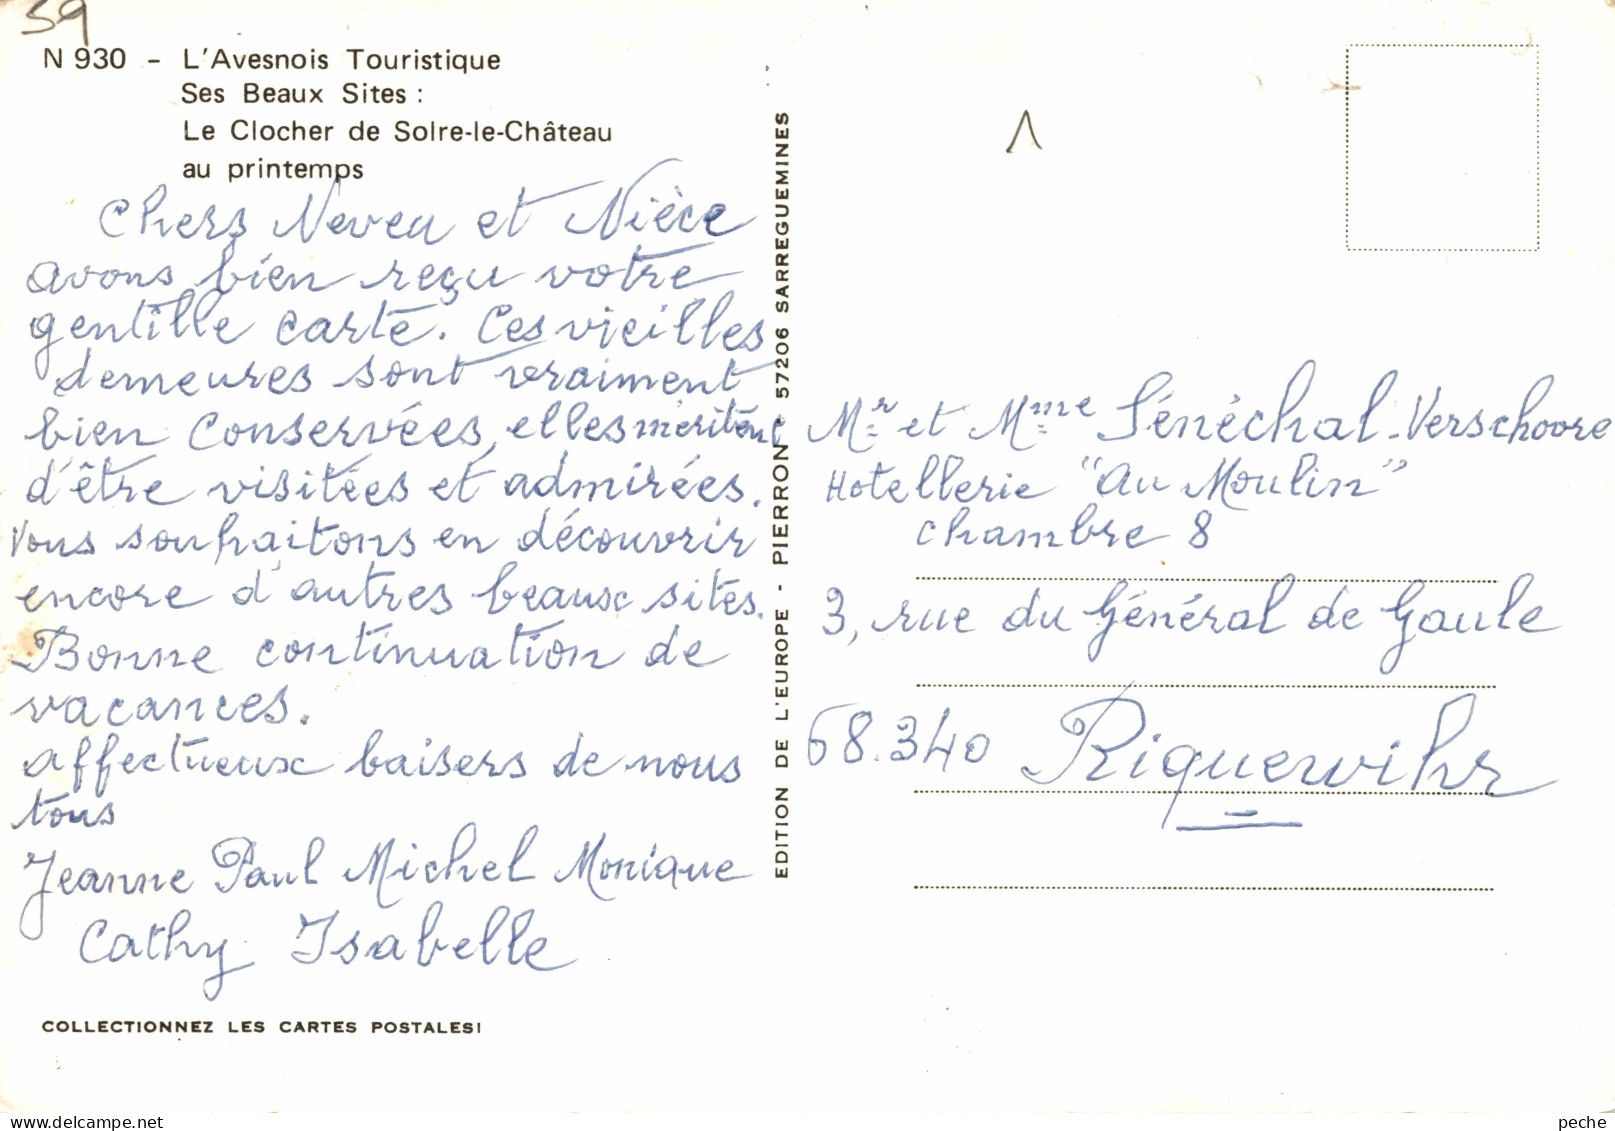 59
N 930 - L'Avesnois Touristique
Ses Beaux Sites :
Le Clocher de Solre-le-Château
au printemps
Chers Neveu et Nièce
avons bien reçu votre
gentille carte. Ces vieilles
demeures sont vraiment
bien conservées, elles méritent
d'être visitées et admirées.
Vous souhaitons en découvrir
encore d'autres beaux sites.
Bonne continuation de
vacances.
affectueux baisers de nous
tous
Jeanne Paul Michel Monique
Cathy Isabelle
COLLECTIONNEZ LES CARTES POSTALES!
EDITION DE L'EUROPE - PIERRON - 57206 SARREGUEMINES
1
Mr et Mme Sénéchal-Verschoore
Hotellerie "Au Moulin"
chambre 8
3, rue du Général de Gaule
68.340 Riquewihr
peche